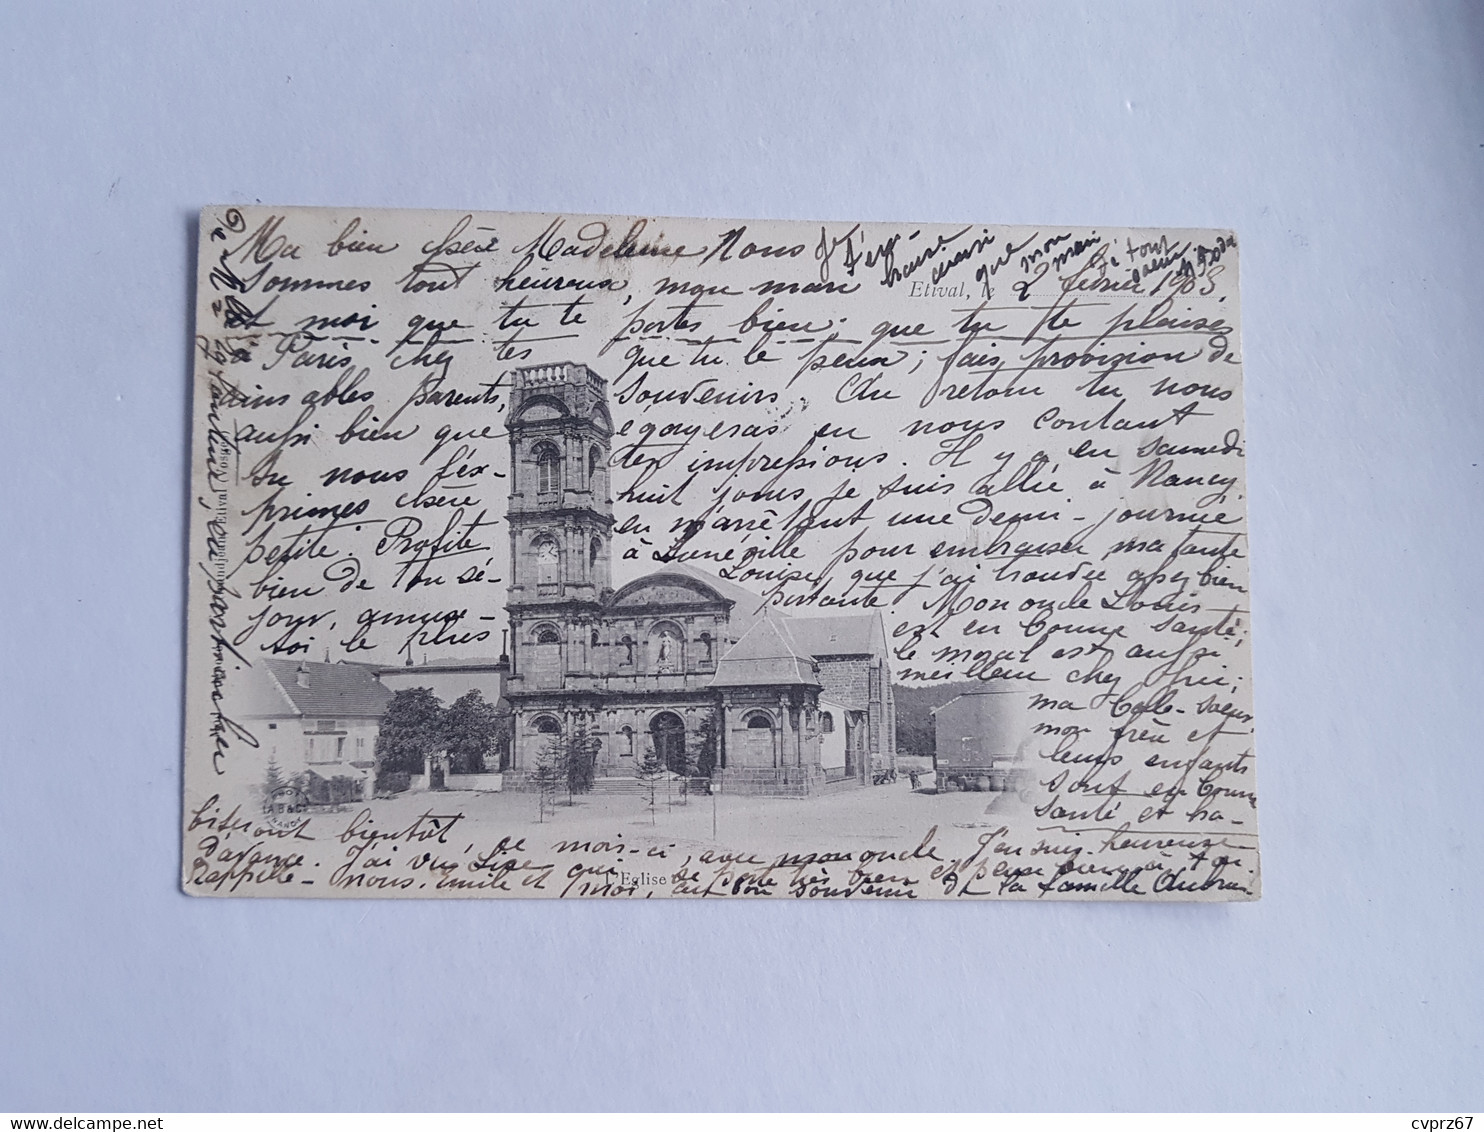 Ma bien chère Madeleine Nous
Je t'em-
brasse ainsi
que mon
mari
de tout
coeur
Etival, le 2 février 1903.
sommes tout heureux, mon mari
et moi que tu te portes bien; que tu te plaises
Paris, chez tes que tu le peux; fais provision de
aimables parents, souvenirs. Au retour tu nous
aussi bien que égayeras en nous contant
tu nous l'ex- tes impressions. Il y a en samedi
primes chère huit jours je suis allée à Nancy,
petite. Profite en m'arrêtant une demi-journée
bien de ton sé- à Lunéville pour embrasser ma tante
jour, amuse- Louise, que j'ai trouvée assez bien
toi le plus portante. Mon oncle Louis
est en bonne santé;
le moral est aussi
meilleur chez lui;
ma belle-soeur,
mon frère et
leurs enfants
sont en bonne
santé et ha-
biteront bientôt, ce mois-ci, avec mon oncle. J'en suis heureuse
d'avance. J'ai vu Lise qui se porte très bien et pense bien à toi
Rappelle-nous, Emile et moi, au bon souvenir de la famille Aubrun
L'Eglise